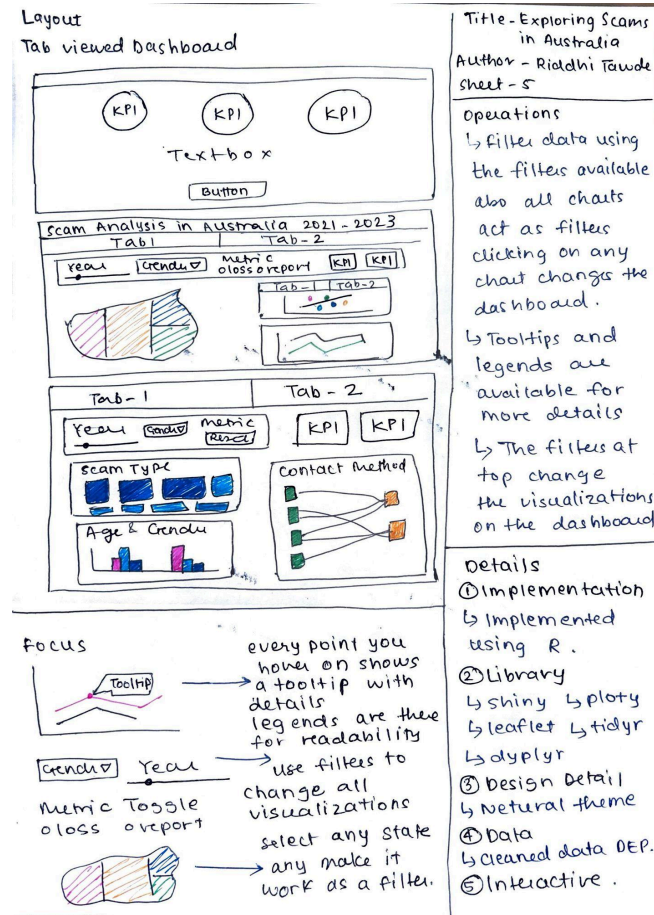 Layout
Tab viewed Dashboard
KPI KPI KPI
Textbox
Button
Scam Analysis in Australia 2021-2023
Tab1 Tab-2
Year Gender Metric
oloss oreport KPI KPI
Tab-1 Tab-2
Tab-1 Tab-2
Year Gender Metric
Reset
KPI KPI
Scam Type
Contact Method
Age & Gender
Focus
Tooltip
every point you
hover on shows
a tooltip with
details
legends are there
for readability
Gender Year
use filters to
change all
visualizations
Metric Toggle
oloss oreport
select any state
any make it
work as a filter.
Title - Exploring Scams
in Australia
Author - Riddhi Tawde
Sheet - 5
Operations
↳ filter data using
the filters available
also all charts
act as filters
clicking on any
chart changes the
dashboard.
↳ Tooltips and
legends are
available for
more details
↳ The filters at
top change
the visualizations
on the dashboard
Details
① Implementation
↳ Implemented
using R.
② Library
↳ shiny ↳ ploty
↳ leaflet ↳ tidyr
↳ dyplyr
③ Design Detail
↳ Netural theme
④ Data
↳ cleaned data DEP.
⑤ Interactive.